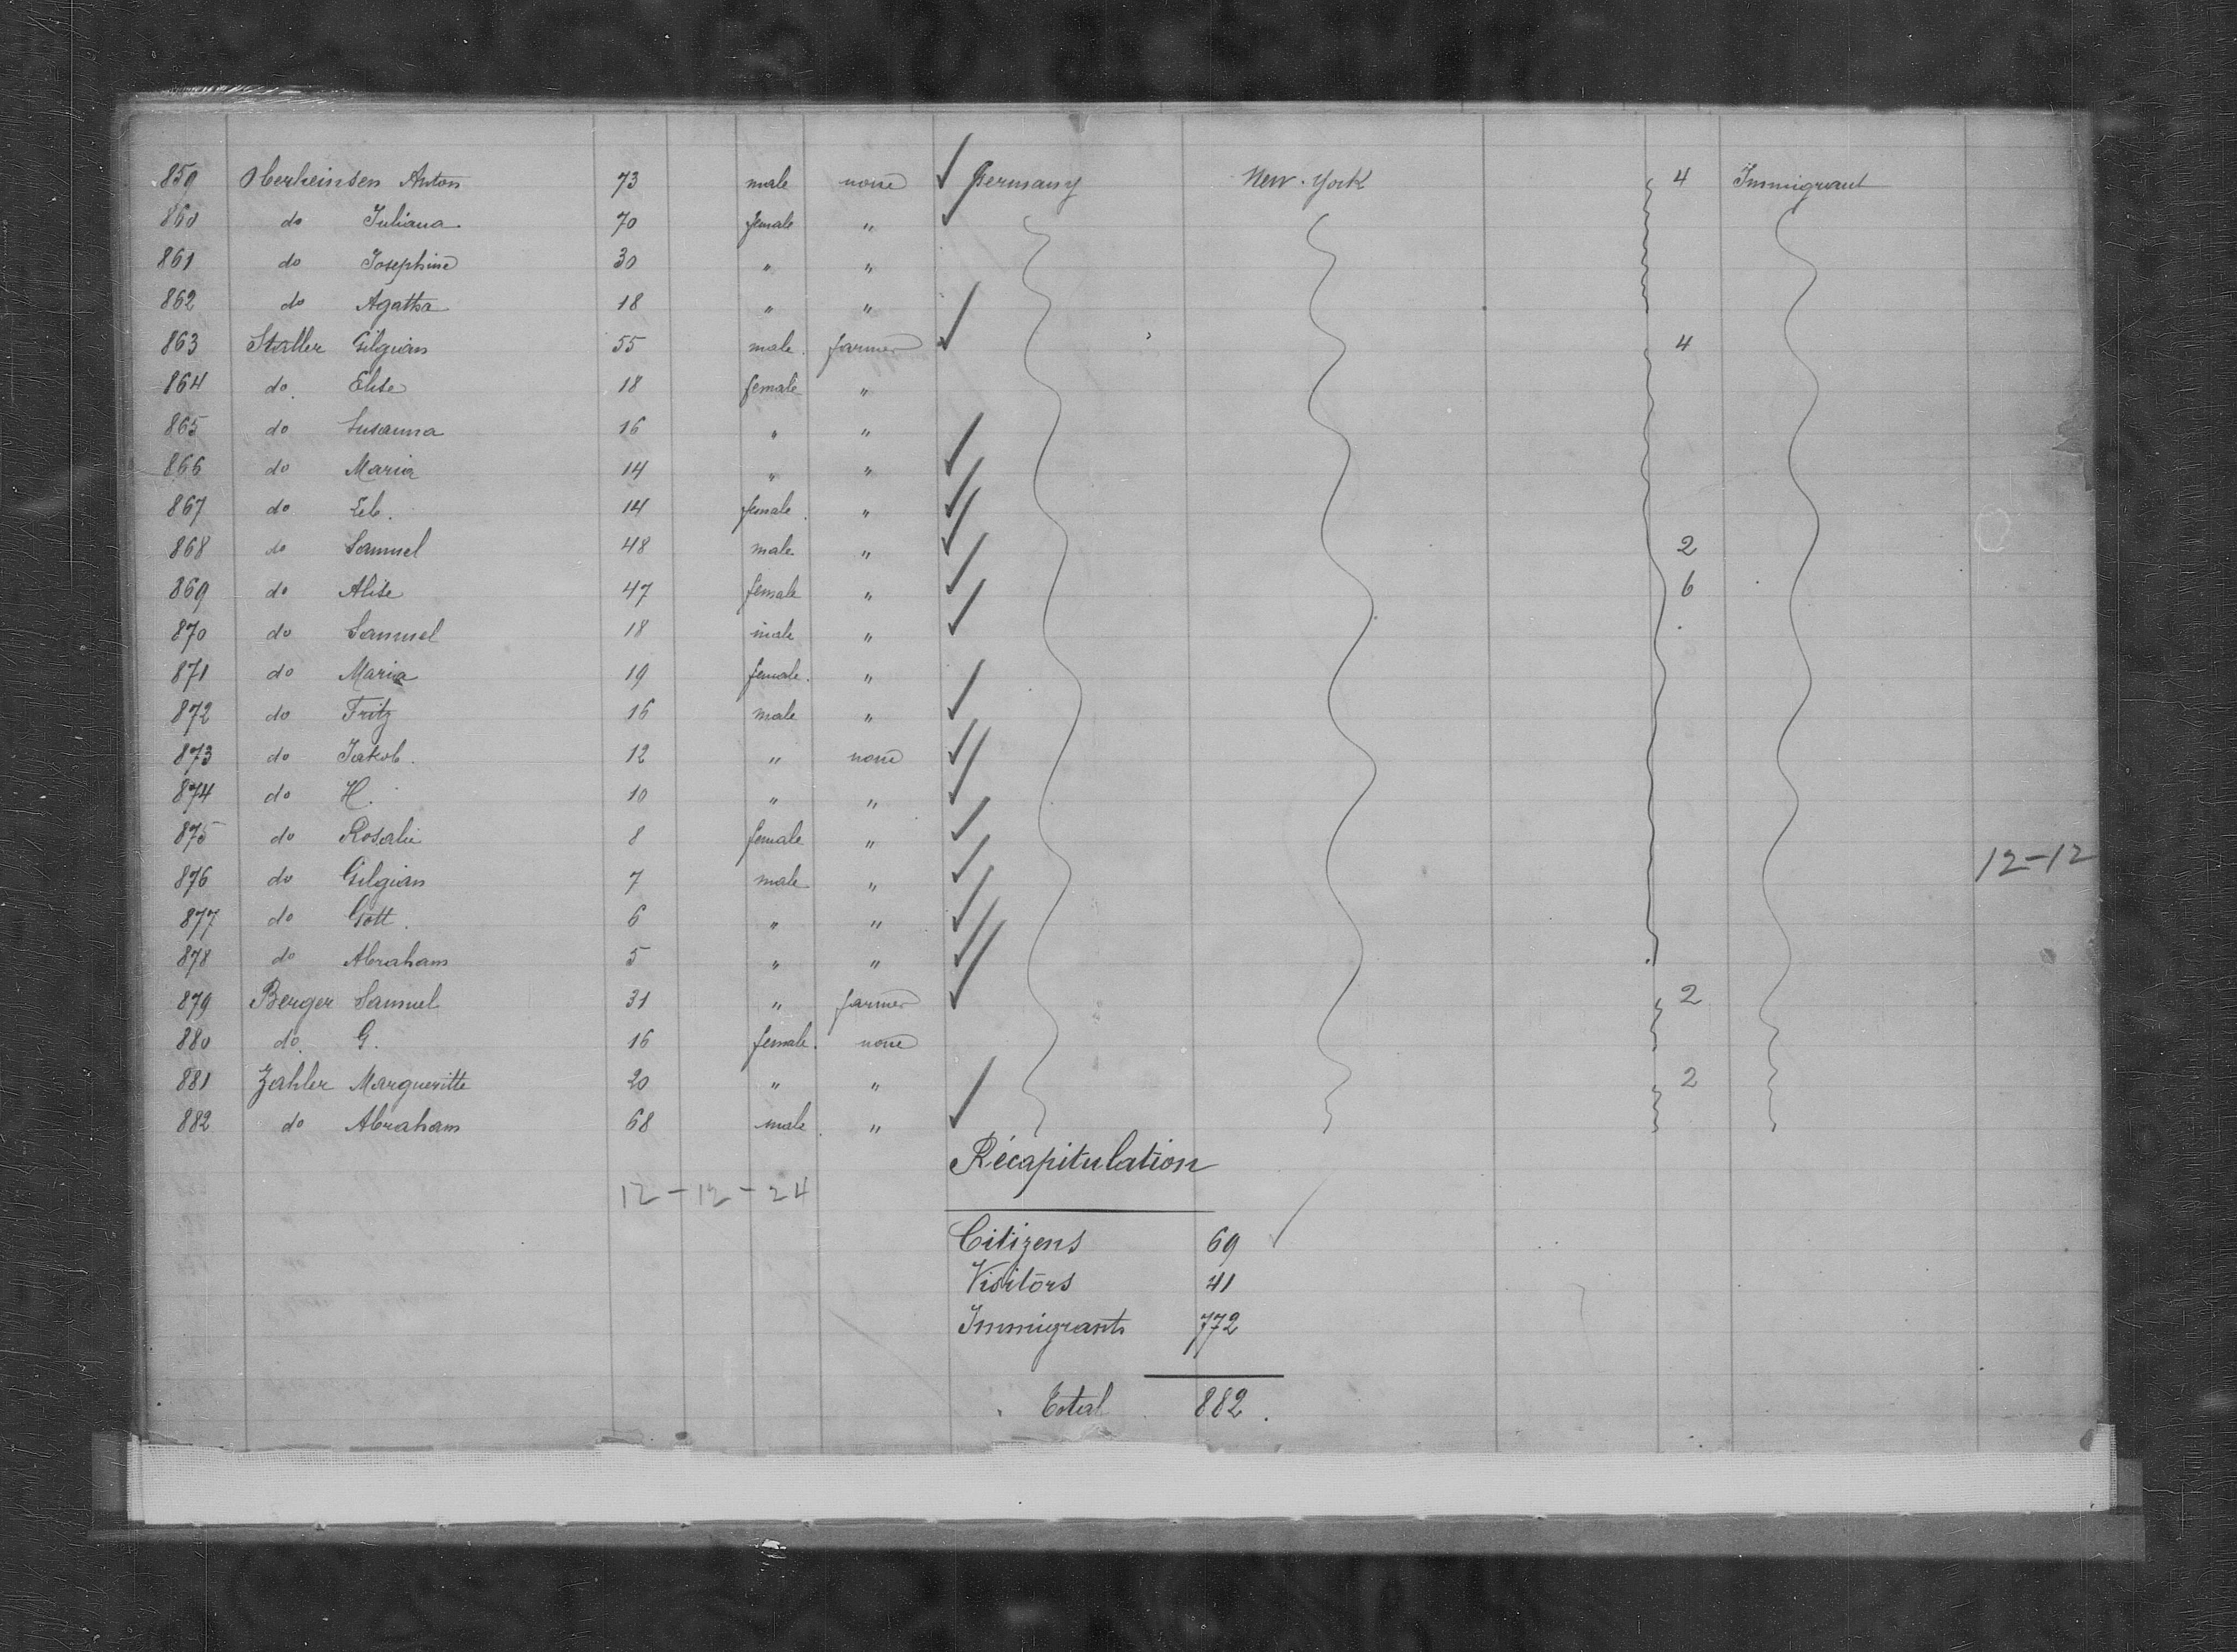 859 Oberheinsen Anton 73 male none Germany New-York 4 Immigrant
860 do Juliana 70 female "
861 do Josephine 30 " "
862 do Agatha 18 " "
863 Staller Gilgian 55 male farmer 4
864 do Elise 18 female "
865 do Susanna 16 " "
866 do Maria 14 " "
867 do 14 female "
868 do Samuel 48 male " 2
869 do Alise 47 female " 6
870 do Samuel 18 male "
871 do Maria 19 female "
872 do Fritz 16 male "
873 do Jakob. 12 " none
874 do H. 10 " "
875 do Rosalie 8 female "
876 do Gilgian 7 male " 12-12
877 do Gott. 6 " "
878 do Abraham 5 " "
879 Berger Samuel 31 " farmer 2
880 do. G. 16 female none
881 Zahler Margueritte 20 " " 2
882 do Abraham 68 male "
Récapitulation
12-12-24
Citizens 69
Visitors 41
Immigrants 772
Total 882.